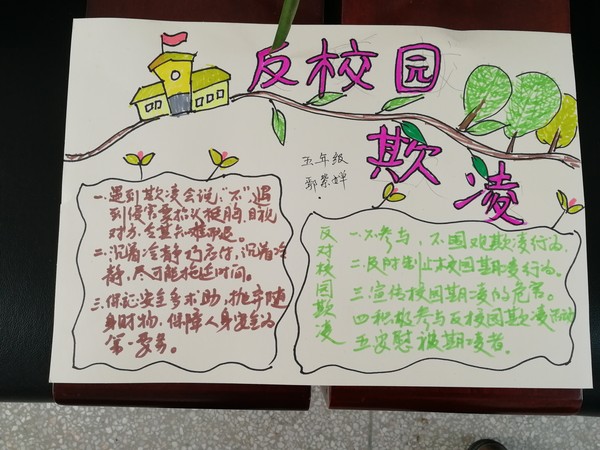 反校园
欺凌
五年级
一.遇到欺凌会说:"不",遇
到侵害要抬头挺胸,目视
对方,令其知难而退。
二.沉着冷静的应付,沉着冷
静,尽可能拖延时间。
三.保证安全多求助,抛弃随
身财物,保障人身安全为
第一要务。
反对校园欺凌
一.不参与,不围观欺凌行为.
二.及时制止校园期凌行为。
三.宣传校园期凌的危害。
四积极参与反校园欺凌活动
五安慰被期凌者。